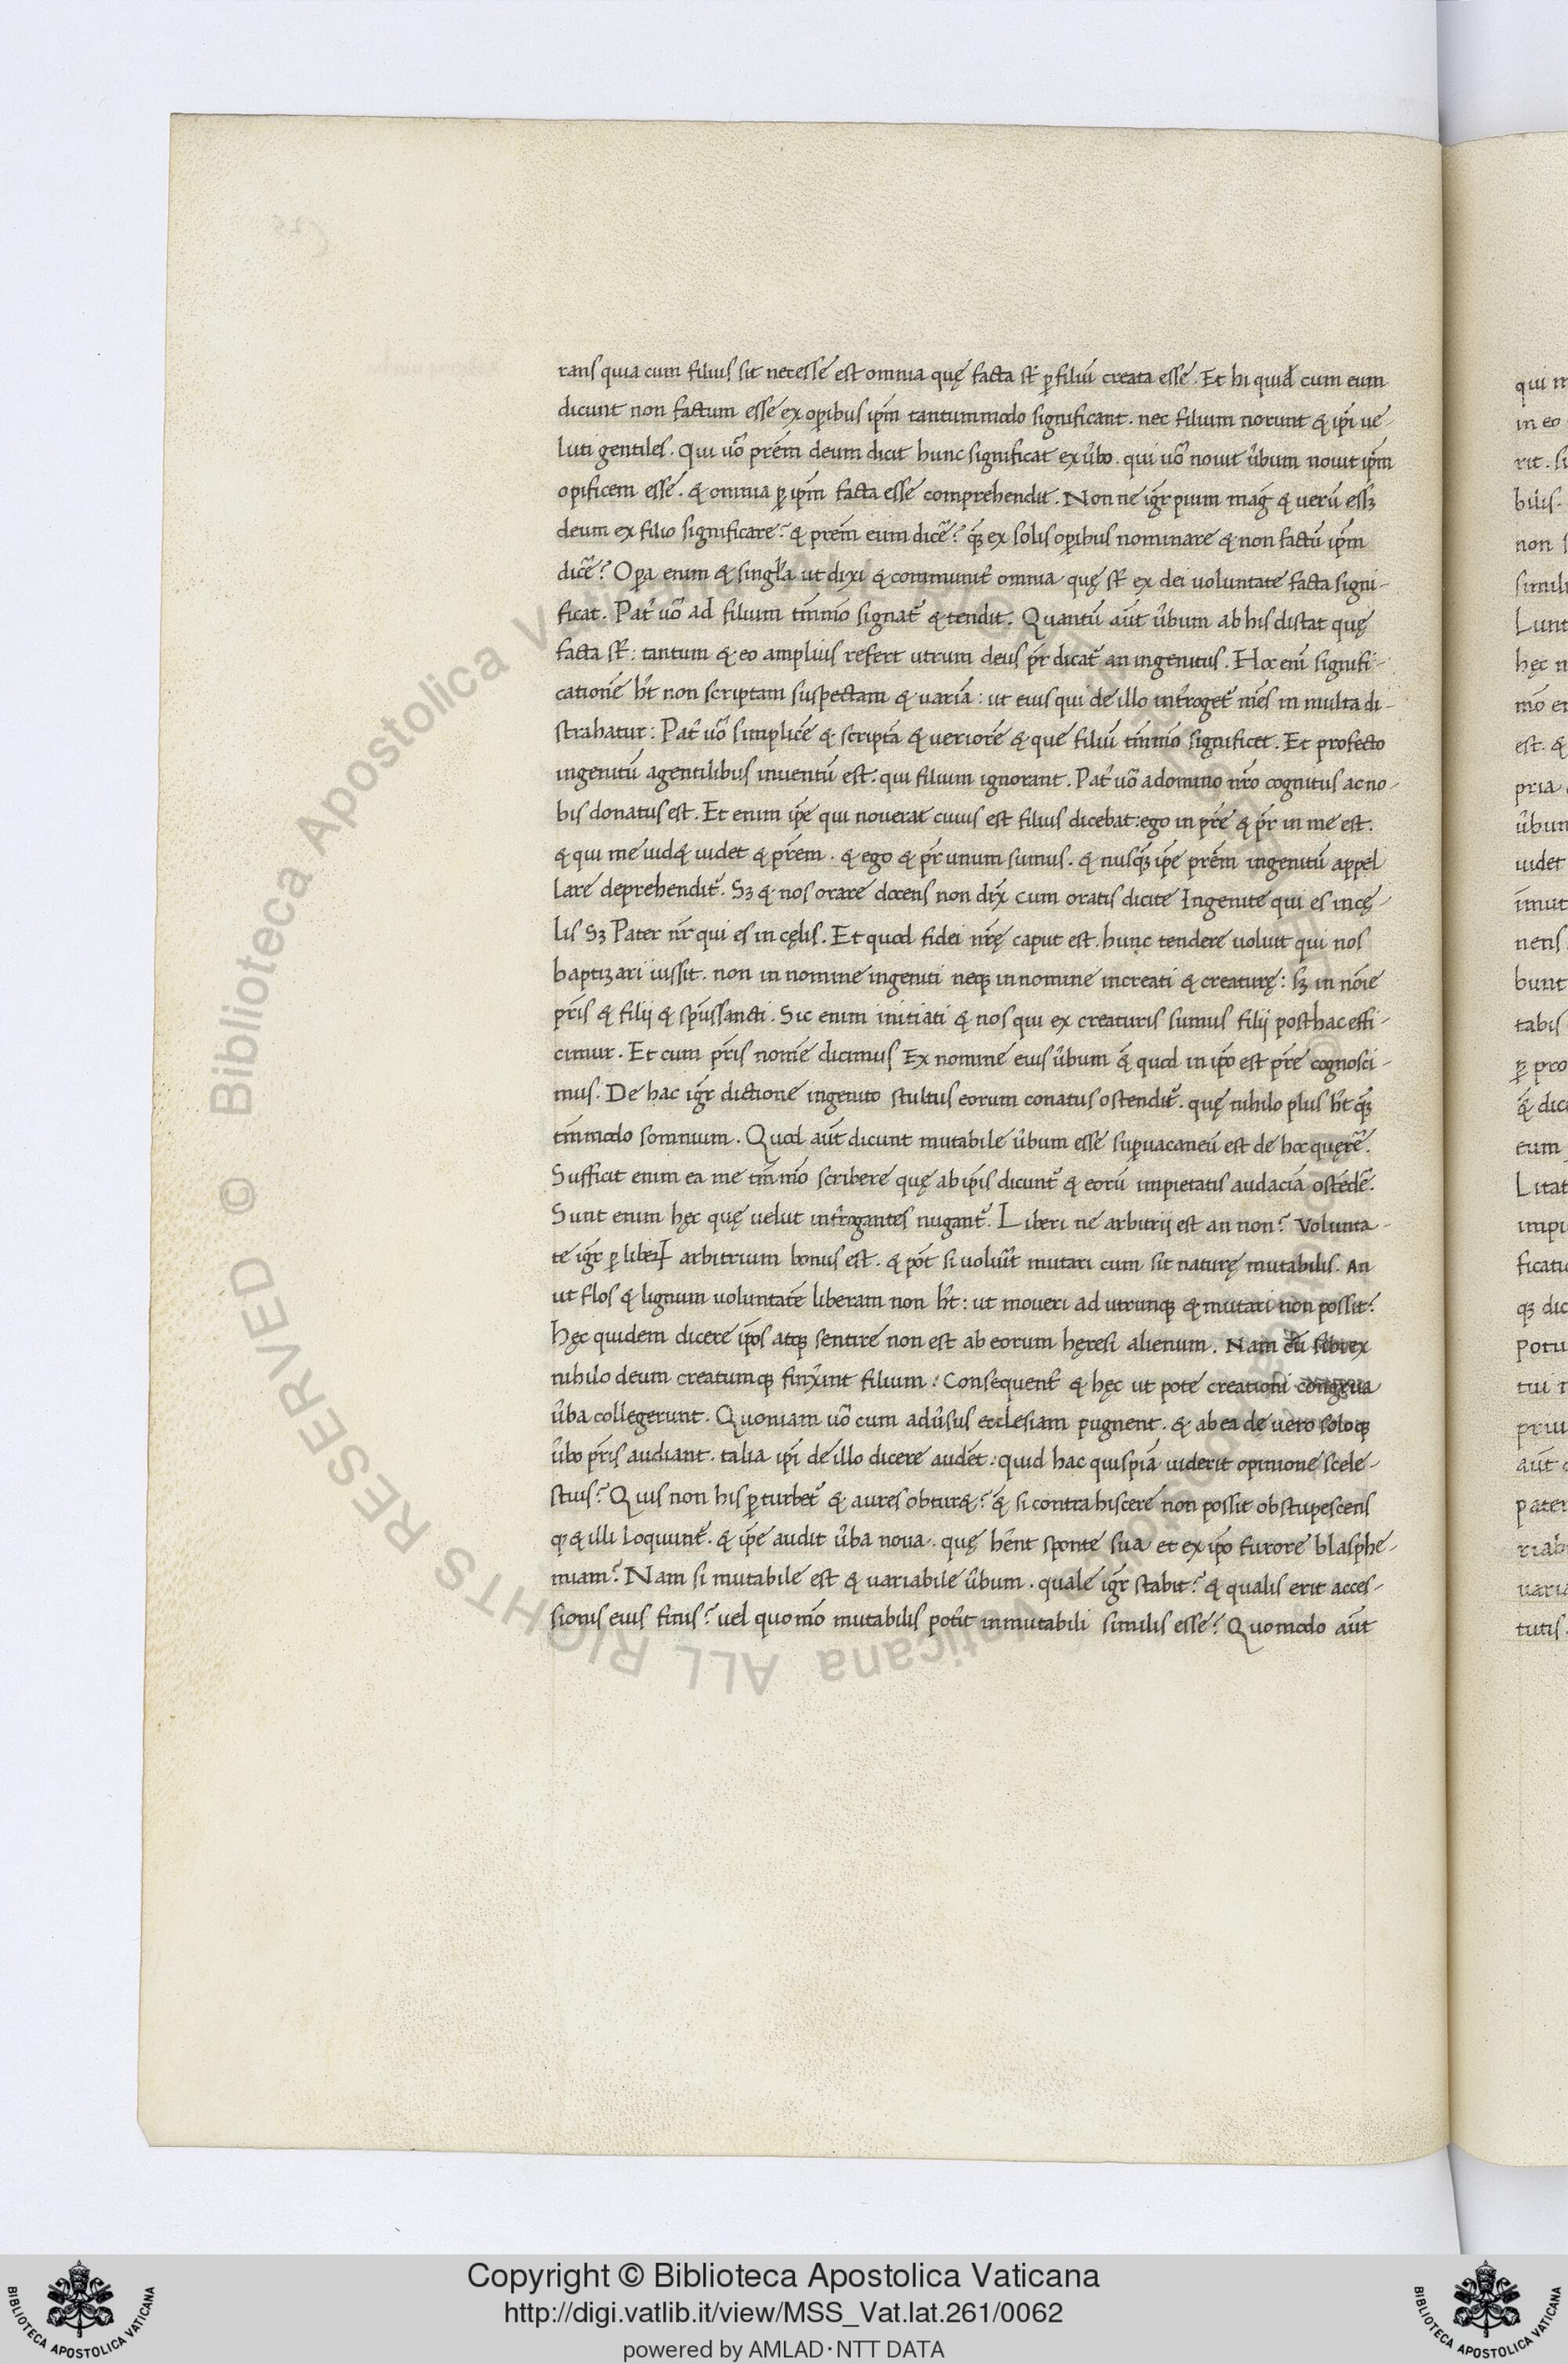 rans quia cum filius sit necesse est omnia quę facta st̄ ꝑ filiū creata esse. Et hi quid̄ cum eum
dicunt non factum esse ex oꝑibus ip̄m tantummodo significant. nec filium norunt & ip̄i ue-
luti gentiles. Qui uō prēm deum dicit hunc significat ex ūbo. qui uō nouit ūbum nouit ip̄m
opificem esse. & omnia ꝑ ip̄m facta esse comprehendit. Non ne igr̄ pium maḡ & uerū essꝫ
deum ex filio significare? & prēm eum dicē? qꝫ̄ ex solis oꝑibus nominare & non factū ip̄m
dicē? Oꝑa enim & singl̄a ut dixi & communit̄ omnia quę st̄ ex dei uoluntate facta signi-
ficat. Pat̄ uō ad filium tm̄mō signat̄ & tendit. Quantū aūt ūbum ab his distat quę
facta st̄: tantum & eo amplius refert utrum deus pr̄ dicat̄ an ingenitus. Hoc enī signifi-
cationē h̄t non scriptam suspectam & uariā: ut eius qui de illo int̄roget̄ mēs in multa di-
strahatur: Pat̄ uō simplicē & scriptā & ueriorē & que filiū tm̄mō significet. Et profecto
ingenitū agentilibus inuentū est. qui filium ignorant. Pat̄ uō a domino nrō cognitus ac no-
bis donatus est. Et enim ip̄e qui nouerat cuius est filius dicebat: ego in prē & pr̄ in me est.
& qui me uid& uidet & prēm. & ego & pr̄ unum sumus. & nusqꝫ̄ ip̄e prēm ingenitū appel
lare deprehendit̄. Sꝫ & nos orare docens non dix̄ cum oratis dicite Ingenite qui es in cę-
lis Sꝫ Pater nr̄ qui es in cęlis. Et quod fidei nrę̄ caput est. hunc tendere uoluit qui nos
baptizari iussit. non in nomine ingeniti neqꝫ in nomine increati & creaturę: sꝫ in noīe
pr̄is & filij & sp̄ussancti. Sic enim initiati & nos qui ex creaturis sumus filij posthac effi-
cimur. Et cum pr̄is nomē dicimus Ex nomine eius ūbum &̄ quod in ip̄o est prē cognosci-
mus. De hac igr̄ dictione ingenito stultus eorum conatus ostendit̄. quę nihilo plus h̄t qꝫ̄
tm̄modo somnium. Quod aūt dicunt mutabile ūbum esse suꝑuacaneū est de hoc quęrē.
Sufficit enim ea me tm̄mō scribere quę ab ip̄is dicunt̄ & eorū impietatis audaciā ostēdē.
Sunt enim hęc quę uelut int̄rogantes nugant̄. Liberi ne arbitrij est an non? Volunta-
te igr̄ ꝑ liberꝝ arbitrium bonus est. & pōt si uolūit mutari cum sit naturę mutabilis. An
ut flos & lignum uoluntatē liberam non h̄t: ut moueri ad utrunqꝫ & mutari non possit?
hęc quidem dicere ip̄os atqꝫ sentire non est ab eorum hęresi alienum. Nam cū sibi ex
nihilo deum creatumqꝫ finx̄int filium: Consequent̄ & hęc ut pote creationi congrua
ūba collegerunt. Quoniam uō cum adūsus ecclesiam pugnent. & ab ea de uero soloqꝫ
ūbo pr̄is audiant. talia ip̄i de illo dicere audēt: quid hac quispiā uiderit opinione scele-
stius? Quis non his ꝑturbet̄ & aures obtur&? &̄ si contra hiscere non possit obstupescens
ꝙ & illi loquunt̄. & ip̄e audit ūba noua. quę hēnt sponte sua et ex ip̄o furore blasphe-
miam? Nam si mutabile est & uariabile ūbum. quale igr̄ stabit? & qualis erit acces-
sionis eius finis? uel quomō mutabilis pot̄it inmutabili similis esse? Quomodo aūt
qui
in eo
rit.
bilis.
non
Lunt
hęc
est. &
pria
uidet
nens
bunt
tabis
ꝑ pro
eum
Litat
impi
potu
tui
pater
tutis.
© Biblioteca Apostolica Vaticana ALL RIGHTS RESERVED
Copyright © Biblioteca Apostolica Vaticana
http://digi.vatlib.it/view/MSS_Vat.lat.261/0062
powered by AMLAD·NTT DATA
BIBLIOTECA APOSTOLICA VATICANA
BIBLIOTECA APOSTOLICA VATICANA